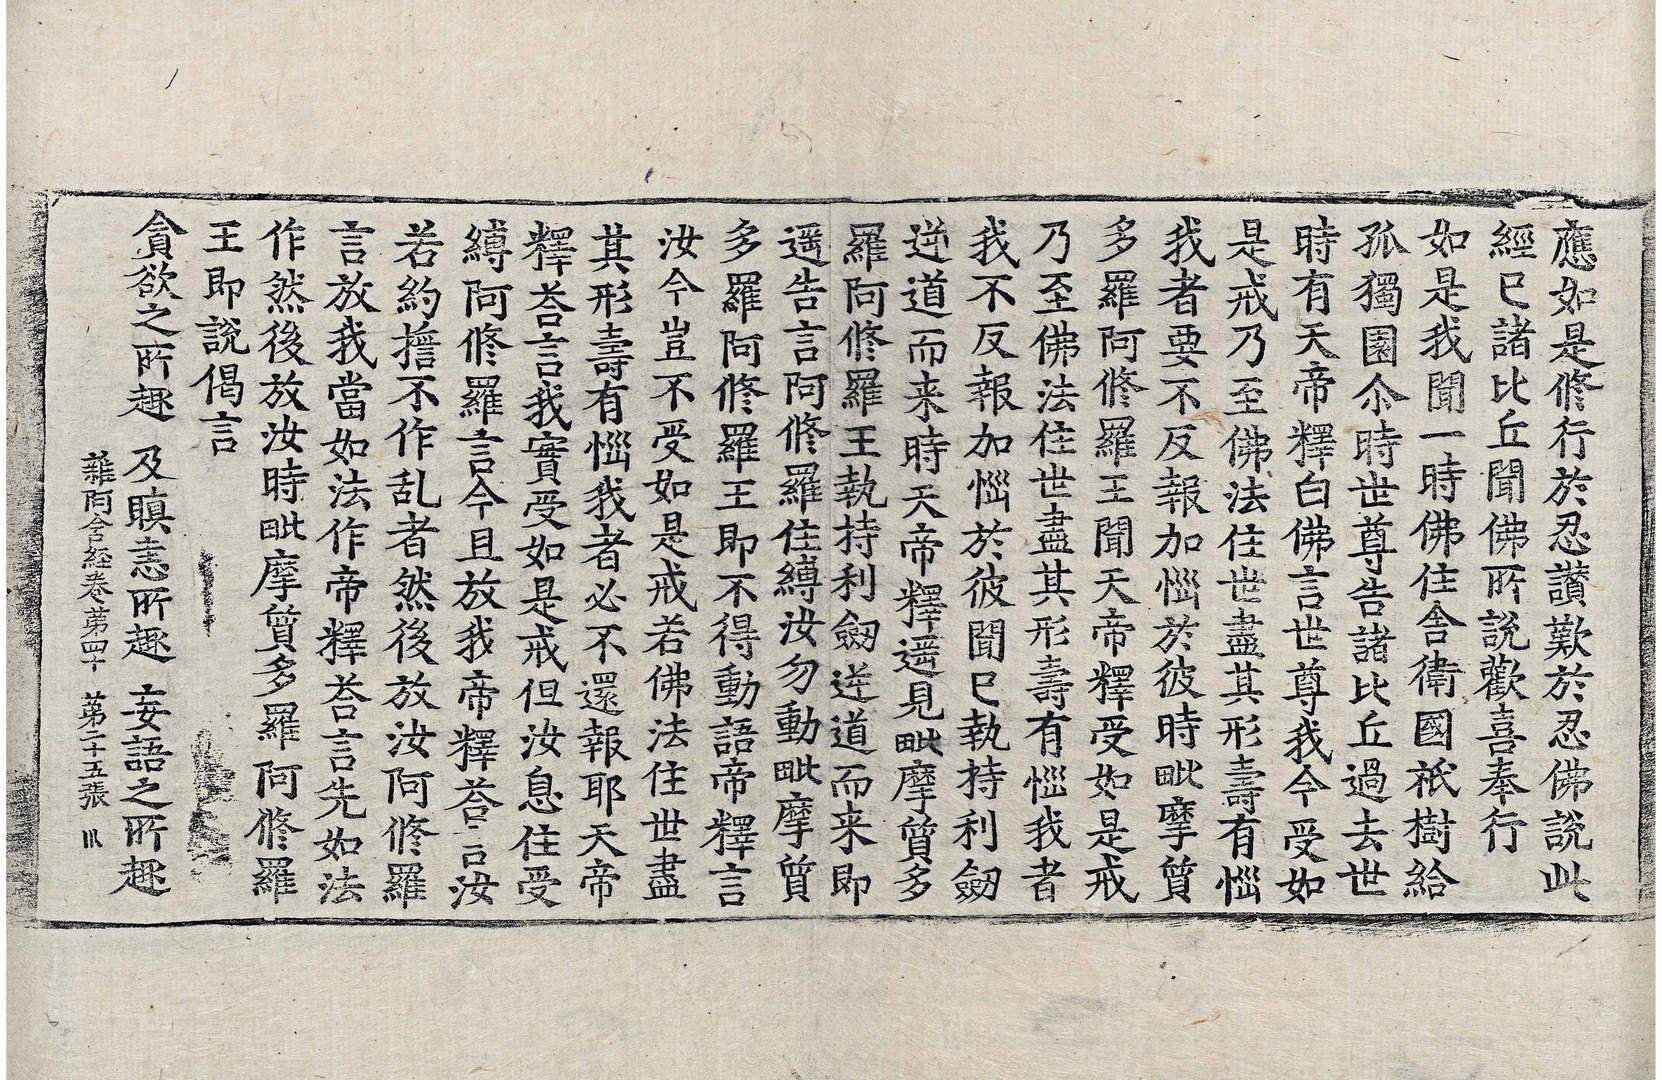 應如是修行於忍讚歎於忍佛說此
經已諸比丘聞佛所說歡喜奉行
如是我聞一時佛住舍衛國祇樹給
孤獨園尒時世尊告諸比丘過去世
時有天帝釋白佛言世尊我今受如
是戒乃至佛法住世盡其形壽有惱
我者要不反報加惱於彼時毗摩質
多羅阿修羅王聞天帝釋受如是戒
乃至佛法住世盡其形壽有惱我者
我不反報加惱於彼聞已執持利劔
逆道而来時天帝釋遥見毗摩質多
羅阿修羅王執持利劔逆道而来即
遥告言阿修羅住縛汝勿動毗摩質
多羅阿修羅王即不得動語帝釋言
汝今豈不受如是戒若佛法住世盡
其形壽有惱我者必不還報耶天帝
釋荅言我實受如是戒但汝息住受
縛阿修羅言今且放我帝釋荅言汝
若約擔不作乱者然後放汝阿修羅
言放我當如法作帝釋荅言先如法
作然後放汝時毗摩質多羅阿修羅
王即說偈言
貪欲之所趣 及瞋恚所趣 妄語之所趣
雜阿含經卷苐四十 苐二十五張